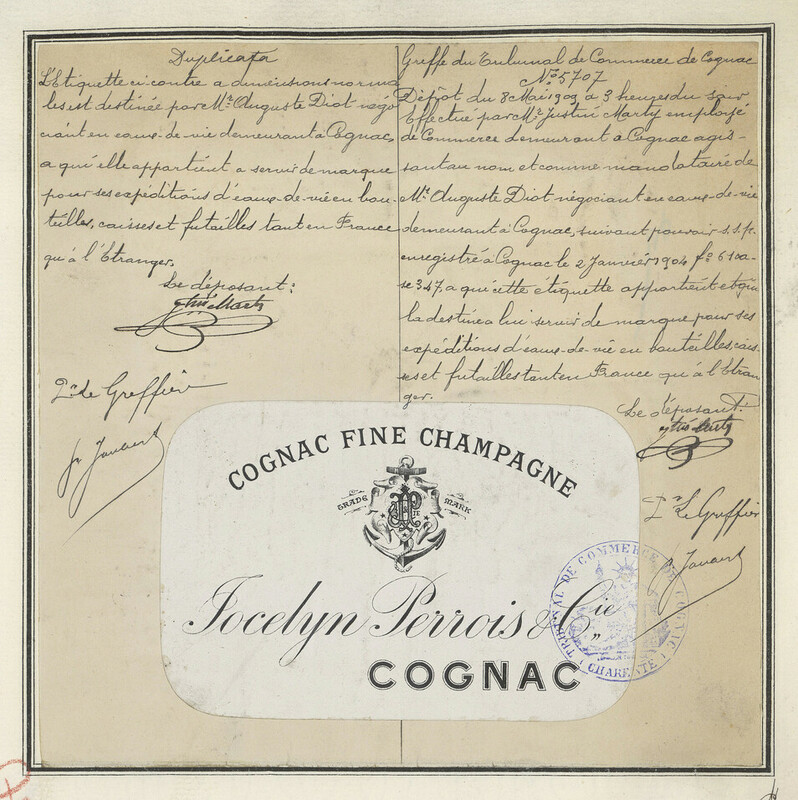 Duplicata
L'Etiquette ci-contre a dimensions norma
les est destinée par Mr. Auguste Diot négo
ciant en eaux-de-vie demeurant à Cognac,
a qui elle appartient a servir de marque
pour ses expéditions d'eaux-de-vie en bou
teilles, caisses et futailles tant en France
qu'à l'Etranger.
Le déposant:
Le Greffier
Greffe du Tribunal de Commerce de Cognac
No. 5707
Dépôt du 8 Mai 1909 à 3 heures du soir
Effectué par Mr. Justin Marty employé
de Commerce demeurant à Cognac agis-
sant au nom et comme mandataire de
Mr. Auguste Diot négociant en eaux-de-vie
demeurant à Cognac, suivant pouvoir s.s.p.
enregistré à Cognac le 2 Janvier 1904 fo. 61 ca-
se 347, a qui cette étiquette appartient et qui
la destine a lui servir de marque pour ses
expéditions d'eaux-de-vie en bouteilles, cais-
ses et futailles tant en France qu'à l'Etran
ger.
Le déposant:
Le Greffier
COGNAC FINE CHAMPAGNE
TRADE MARK
Jocelyn Perrois & Cie
COGNAC
TRIBUNAL DE COMMERCE DE COGNAC
(CHARENTE)